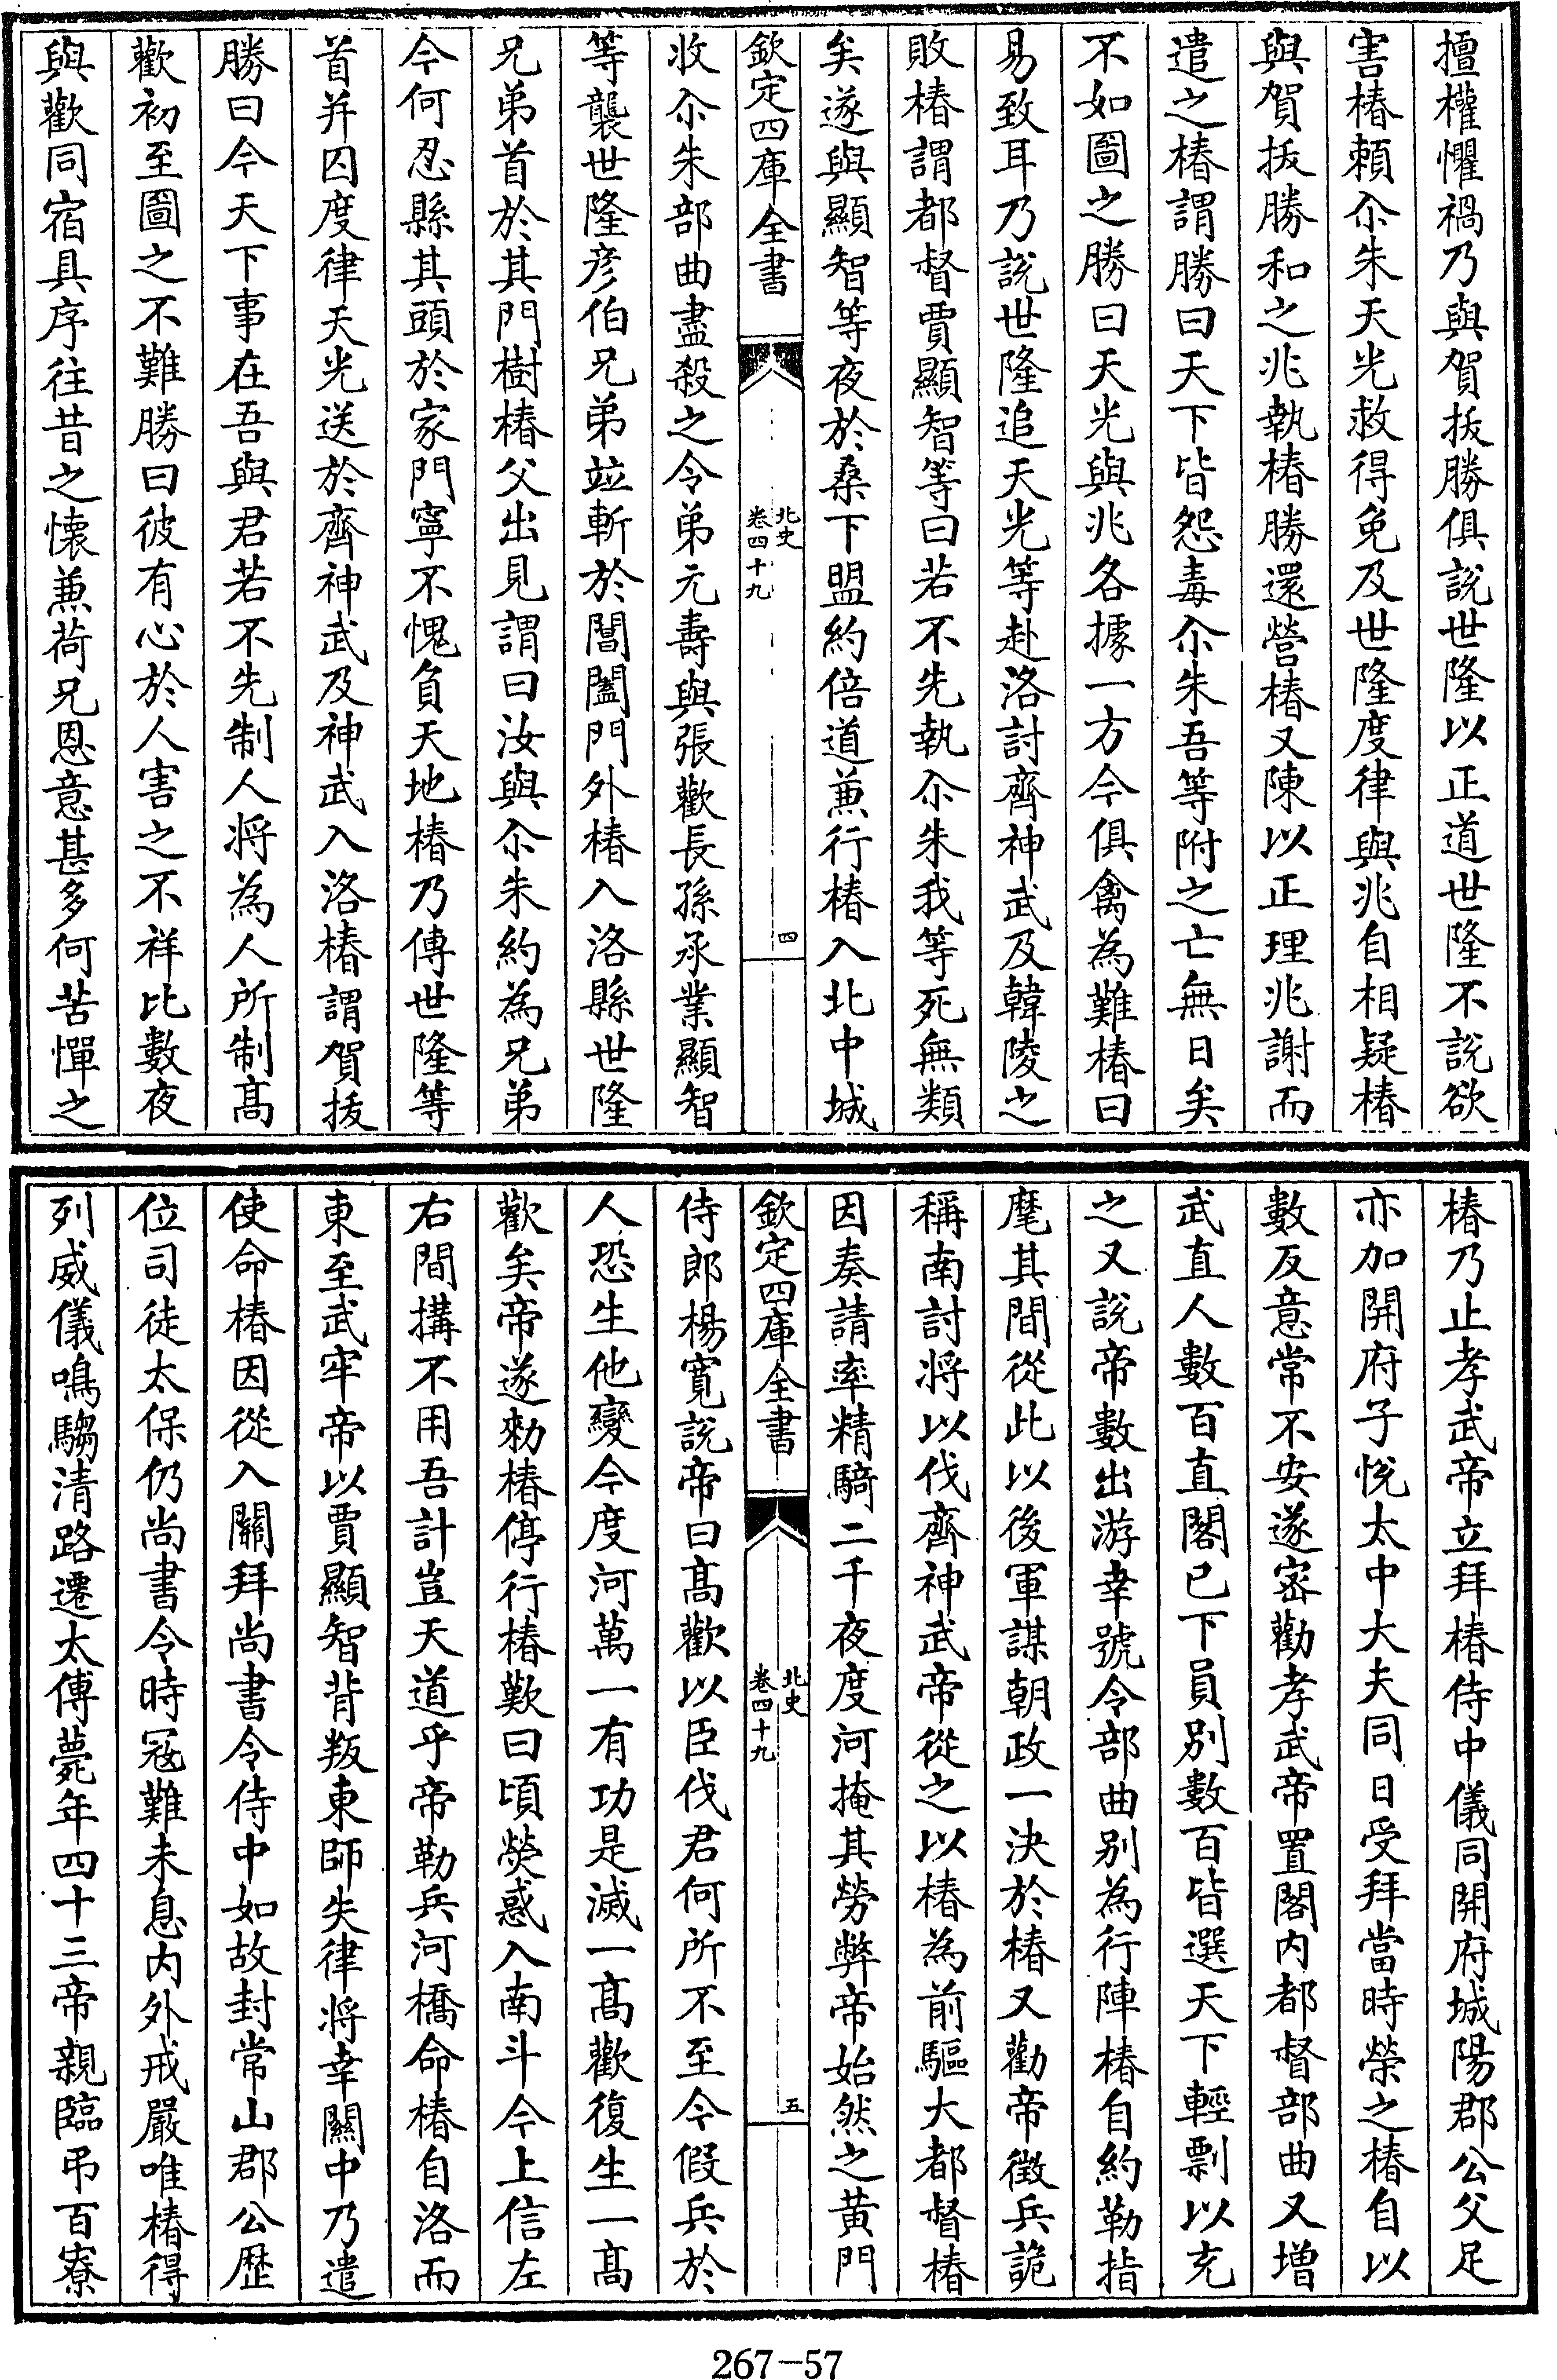 擅權懼禍乃與賀拔勝俱說世隆以正道世隆不說欲
害椿賴尒朱天光救得免及世隆度律與兆自相疑椿
與賀拔勝和之兆執椿勝還營椿又陳以正理兆謝而
遣之椿謂勝曰天下皆怨毒尒朱吾等附之亡無日矣
不如圖之勝曰天光與兆各據一方今俱禽為難椿曰
易致耳乃說世隆追天光等赴洛討齊神武及韓陵之
敗椿謂都督賈顯智等曰若不先執尒朱我等死無類
矣遂與顯智等夜於桑下盟約倍道兼行椿入北中城
欽定四庫全書
北史
卷四十九
四
收尒朱部曲盡殺之令弟元壽與張歡長孫承業顯智
等襲世隆彥伯兄弟竝斬於閶闔門外椿入洛縣世隆
兄弟首於其門樹椿父出見謂曰汝與尒朱約為兄弟
今何忍縣其頭於家門寧不愧負天地椿乃傳世隆等
首并囚度律天光送於齊神武及神武入洛椿謂賀拔
勝曰今天下事在吾與君若不先制人將為人所制髙
歡初至圖之不難勝曰彼有心於人害之不祥比數夜
與歡同宿具序往昔之懷兼荷兄恩意甚多何苦憚之
椿乃止孝武帝立拜椿侍中儀同開府城陽郡公父足
亦加開府子悅太中大夫同日受拜當時榮之椿自以
數反意常不安遂密勸孝武帝置閣內都督部曲又增
武直人數百直閣已下員別數百皆選天下輕剽以充
之又說帝數出游幸號令部曲別為行陣椿自約勒指
麾其間從此以後軍謀朝政一決於椿又勸帝徵兵詭
稱南討將以伐齊神武帝從之以椿為前驅大都督椿
因奏請率精騎二千夜度河掩其勞弊帝始然之黃門
欽定四庫全書
北史
卷四十九
五
侍郎楊寬說帝曰髙歡以臣伐君何所不至今假兵於
人恐生他變今度河萬一有功是滅一髙歡復生一髙
歡矣帝遂勑椿停行椿歎曰頃熒惑入南斗今上信左
右間搆不用吾計豈天道乎帝勒兵河橋命椿自洛而
東至武牢帝以賈顯智背叛東師失律將幸關中乃遣
使命椿因從入關拜尚書令侍中如故封常山郡公歷
位司徒太保仍尚書令時冦難未息內外戒嚴唯椿得
列威儀鳴騶清路遷太傅薨年四十三帝親臨弔百寮
267-57